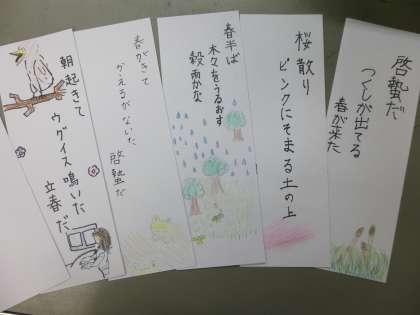 啓蟄だ
つくしが出てる
春が来た
桜散り
ピンクにそまる土の上
春半ば
木々をうるおす
穀雨かな
春がきて
かえるがないた
啓蟄だ
朝起きて
ウグイス鳴いた
立春だ